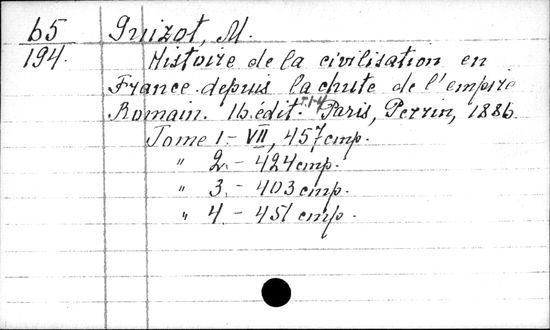 65 Guizot, M.
194. Histoire de la civilisation en
France depuis la chute de l'empire
Romain. 16 édit. T. 1-4 Paris, Perrin, 1886.
Tome 1. - VII, 457 cmp.
" 2. - 424 cmp.
" 3. - 403 cmp.
" 4. - 451 cmp.